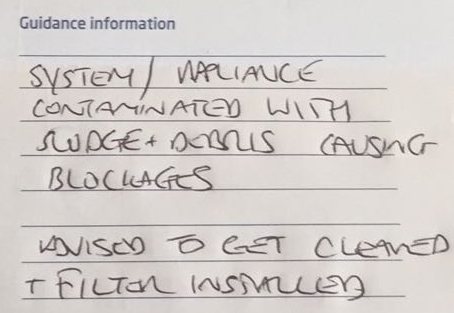 Guidance information
SYSTEM/ APPLIANCE
CONTAMINATED WITH
SLUDGE + DEBRIS CAUSING
BLOCKAGES
ADVISED TO GET CLEANED
+ FILTER INSTALLED